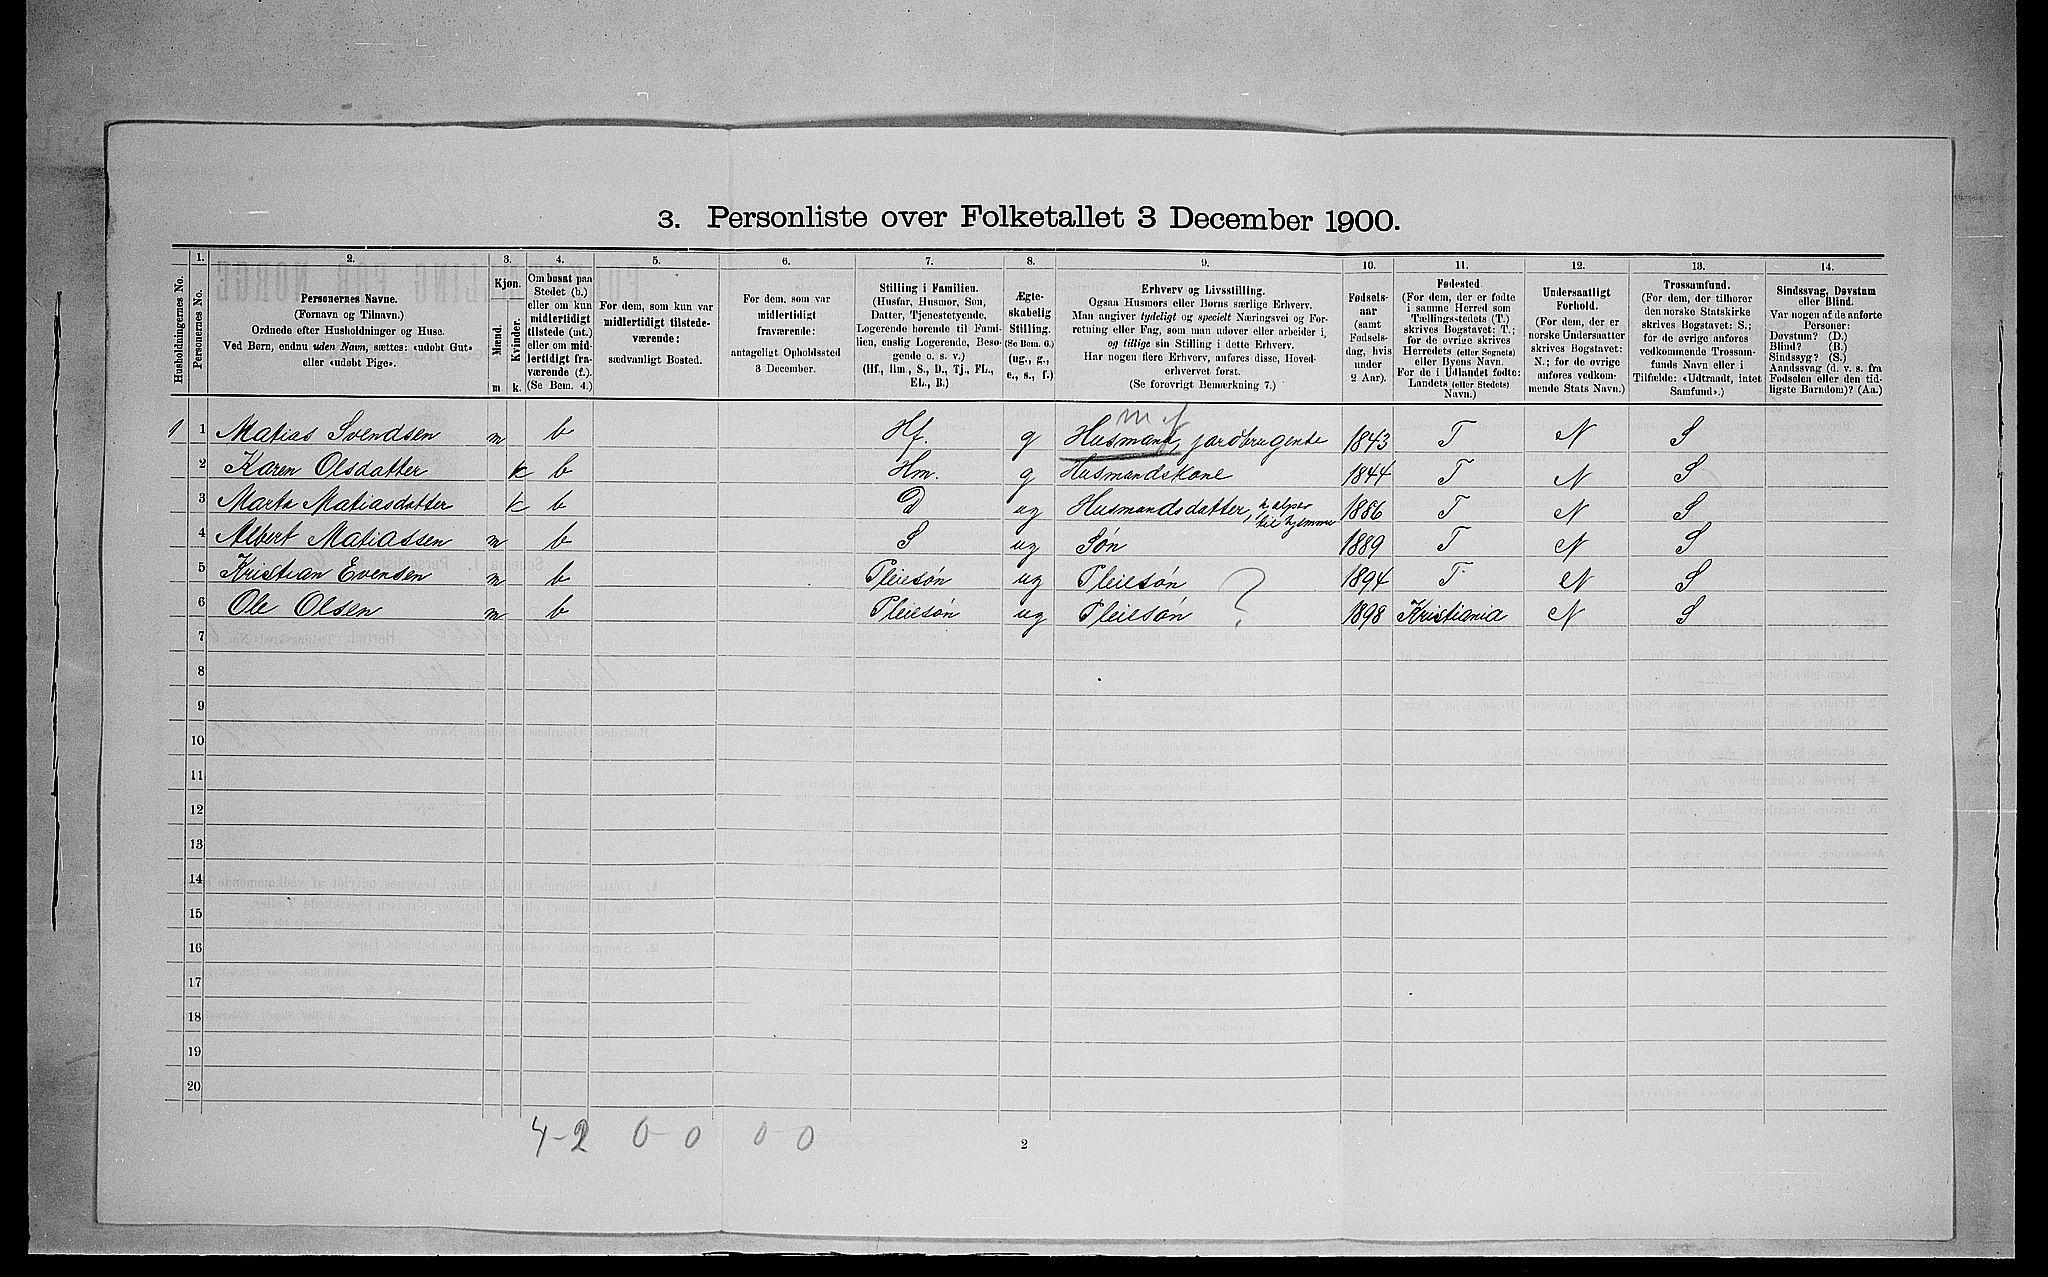 3. Personliste over Folketallet 3 December 1900.
Husholdningernes No.
1.
Personernes No.
2.
Personernes Navne.
(Fornavn og Tilnavn.)
Ordnede efter Husholdninger og Huse.
Ved Børn, endnu uden Navn, sættes: «udøbt Gut»
eller «udøbt Pige».
3.
Kjøn.
Mænd.
Kvinder.
m
k.
4.
Om bosat paa
Stedet (b.)
eller om kun
midlertidigt
tilstede (mt.)
eller om mid-
lertidigt fra-
værende (f.).
(Se Bem. 4.)
5.
For dem, som kun var
midlertidigt tilstede-
værende:
sædvanligt Bosted.
6.
For dem, som var
midlertidigt
fraværende:
antageligt Opholdssted
3 December.
7.
Stilling i Familien.
(Husfar, Husmor, Søn,
Datter, Tjenestetyende,
Logerende hørende til Fami-
lien, enslig Logerende, Besø-
gende o. s. v.)
(Hf., Hm., S., D., Tj., FL.,
EL., B.)
8.
Ægte-
skabelig
Stilling.
(Se Bem. 6.)
(ug., g.,
e., s., f.)
9.
Erhverv og Livsstilling.
Ogsaa Husmors eller Børns særlige Erhverv.
Man angiver tydeligt og specielt Næringsvei og For-
retning eller Fag, som man udøver eller arbeider i,
og tillige sin Stilling i dette Erhverv.
Har nogen flere Erhverv, anføres disse, Hoved-
erhvervet først.
(Se forøvrigt Bemærkning 7.)
10.
Fødsels-
aar
(samt
Fødsels-
dag, hvis
under
2 Aar).
11.
Fødested.
(For dem, der er fødte
i samme Herred som
Tællingsstedets (T.)
skrives Bogstavet: T.;
for de øvrige skrives
Herredets (eller Sognets)
eller Byens Navn.
For de i Udlandet fødte:
Landets (eller Stedets)
Navn.)
12.
Undersaatligt
Forhold.
(For dem, der er
norske Undersaatter
skrives Bogstavet:
N.; for de øvrige
anføres vedkom-
mende Stats Navn.)
13.
Trossamfund.
(For dem, der tilhører
den norske Statskirke
skrives Bogstavet: S.;
for de øvrige anføres
vedkommende Trossam-
funds Navn eller i
Tilfælde: «Udtraadt, intet
Samfund».)
14.
Sindssvag, Døvstum
eller Blind.
Var nogen af de anførte
Personer:
Døvstum? (D.)
Blind? (B.)
Sindssyg? (S.)
Aandssvag (d. v. s. fra
Fødselen eller den tid-
ligste Barndom)? (Aa.)
1 1 Matias Svendsen m b Hf. g Husmand, jordbrugende 1843 T N S
2 Karen Olsdatter k b Hm. g Husmandskone 1844 T N S
3 Marta Matiasdatter k b D ug Husmandsdatter, hjelper til hjemme 1886 T N S
4 Albert Matiassen m b S ug Søn 1889 T N S
5 Kristian Evensen m b Pleiesøn ug Pleiesøn ? 1894 T N S
6 Ole Olsen m b Pleiesøn ug Pleiesøn 1898 Kristiania N S
7
8
9
10
11
12
13
14
15
16
17
18
19
20
4-2 0-0 0-0
2